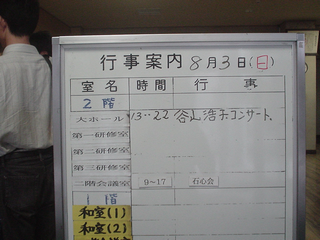 行事案内 8月3日(日)
室名 時間 行事
2階
大ホール 13..22 谷山浩子コンサート
第一研修室
第二研修室
第三研修室
二階会議室 9~17 石心会
1階
和室(1)
和室(2)